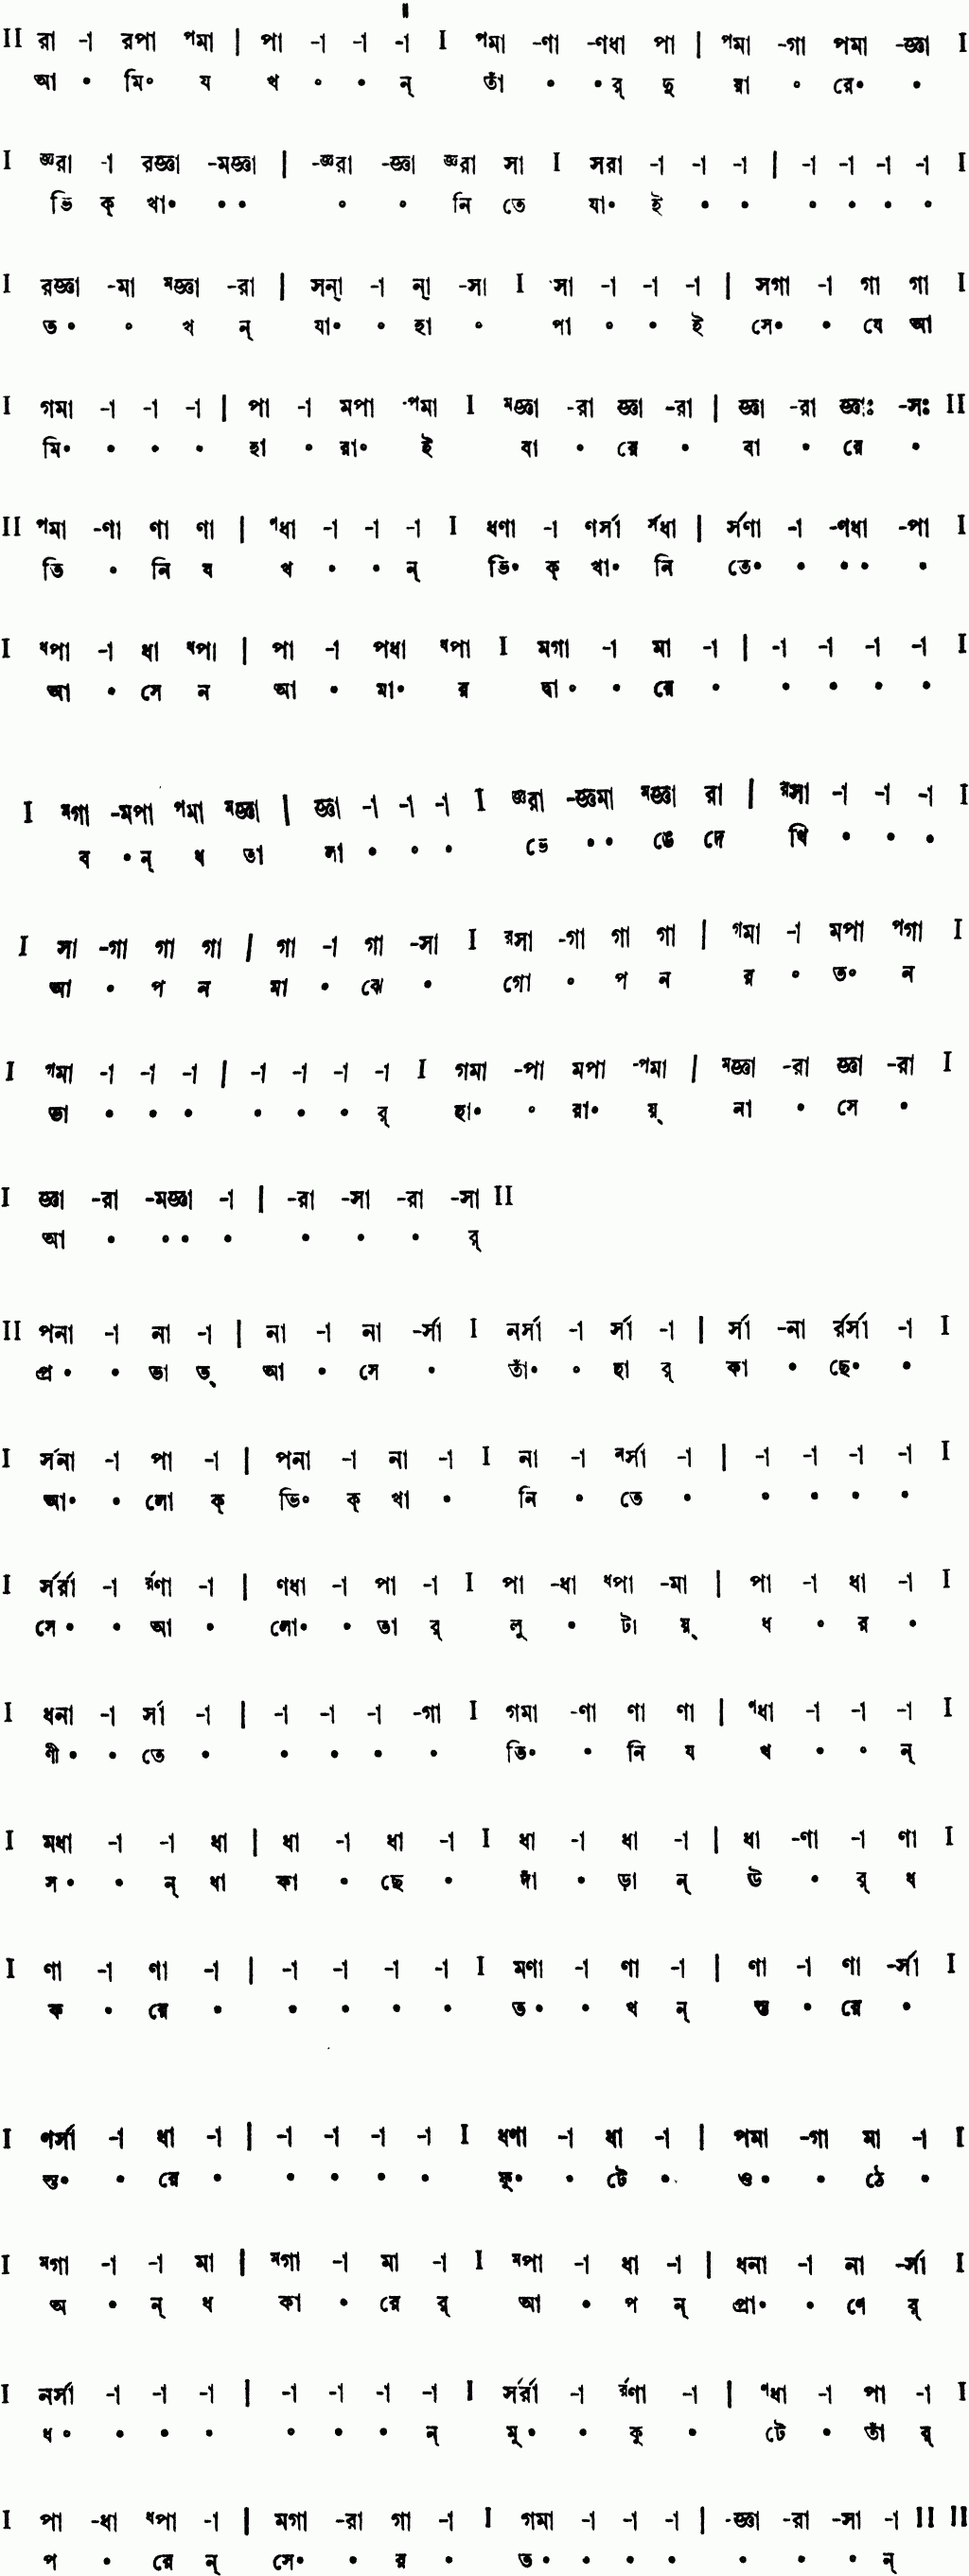 II রা -া রপা ᵖমা | পা -া -া -া I ᵖমা -ণা -ণধা পা | ᵖমা -গা পমা -জ্ঞা I
আ • মি॰ য খ ॰ • ন্ তাঁ • •র্ দু য়া ॰ রে॰ •
I জ্ঞরা -া রজ্ঞা -মজ্ঞা | -জ্ঞরা -জ্ঞা জ্ঞরা সা I সরা -া -া -া | -া -া -া -া I
ভি ক্ খা॰ • • ॰ ॰ নি তে যা॰ ই • • • • • •
I রজ্ঞা -মা মজ্ঞা -রা | সন্া -া ন্া -সা I সা -া -া -া | সগা -া গা গা I
ত • ॰ খ ন্ যা॰ • হা ॰ পা ॰ • ই সে॰ • যে আ
I গমা -া -া -া | পা -া মপা -পমা I মজ্ঞা -রা জ্ঞা -রা | জ্ঞা -রা জ্ঞাঃ -সঃ II
মি॰ • • • হা • রা॰ ই বা • রে • বা • রে •
II পমা -ণা ণা ণা | ণধা -া -া -া I ধণা -া ণর্সা র্সধা | র্সণা -া -ণধা -পা I
তি • নি য খ • • ন্ ভি• ক্ খা॰ নি তে॰ • • • •
I ধপা -া ধা ধপা | পা -া পধা ধপা I মগা -া মা -া | -া -া -া -া I
আ • সে ন আ • মা॰ র দ্বা॰ • রে • • • • •
I মগা -মপা পমা মজ্ঞা | জ্ঞা -া -া -া I জ্ঞরা -জ্ঞমা মজ্ঞা রা | রসা -া -া -া I
ব •ন্ ধ তা লা • • • ভে • • ঙে দে খি • • •
I সা -গা গা গা | গা -া গা -সা I রসা -গা গা গা | গমা -া মপা পগা I
আ • প ন মা • ঝে • গো ॰ প ন র ॰ ত॰ ন
I গমা -া -া -া | -া -া -া -া I গমা -পা মপা -পমা | মজ্ঞা -রা জ্ঞা -রা I
ভা • • • • • • র্ হা॰ ॰ রা॰ য়্ না • সে •
I জ্ঞা -রা -মজ্ঞা -া | -রা -সা -রা -সা II
আ • • • • • • • র্
II পনা -া না -া | না -া না -র্সা I নর্সা -া র্সা -া | র্সা -না র্রর্সা -া I
প্র • • ভা ত্ আ • সে • তাঁ॰ ॰ হা র্ কা • ছে॰ •
I র্সনা -া পা -া | পনা -া না -া I না -া নর্সা -া | -া -া -া -া I
আ॰ • লো ক্ ভি॰ ক্ খা • নি • তে • • • • •
I র্সর্রা -া র্রণা -া | ণধা -া পা -া I পা -ধা ধপা -মা | পা -া ধা -া I
সে • • আ • লো॰ • তা র্ লু • টা য়্ ধ • র •
I ধনা -া র্সা -া | -া -া -া -গা I গমা -ণা ণা ণা | ণধা -া -া -া I
ণী • • তে • • • • • তি॰ • নি য খ • ॰ ন্
I মধা -া -া ধা | ধা -া ধা -া I ধা -া ধা -া | ধা -ণা -া ণা I
স • • ন্ ধা কা • ছে • দাঁ • ড়া ন্ ঊ • র্ ধ
I ণা -া ণা -া | -া -া -া -া I মণা -া ণা -া | ণা -া ণা -র্সা I
ক • রে • • • • • ত • • খ ন্ স্ত • রে •
I ণর্সা -া ধা -া | -া -া -া -া I ধণা -া ধা -া | পমা -গা মা -া I
স্ত॰ • রে • • • • • ফু॰ • টে • ও॰ • ঠে •
I মগা -া -া মা | মগা -া মা -া I মপা -া ধা -া | ধনা -া না -র্সা I
অ • ন্ ধ কা • রে র্ আ • প ন্ প্রা॰ • ণে র্
I নর্সা -া -া -া | -া -া -া -া I র্সর্রা -া র্রণা -া | ণধা -া পা -া I
ধ • • • • • • • ন্ মু • • কু • টে • তাঁ র্
I পা -ধা ধপা -া | মগা -রা গা -া I গমা -া -া -া | -জ্ঞা -রা -সা -া II II
প • রে ন্ সে॰ • র • ত • • • • • • • ন্